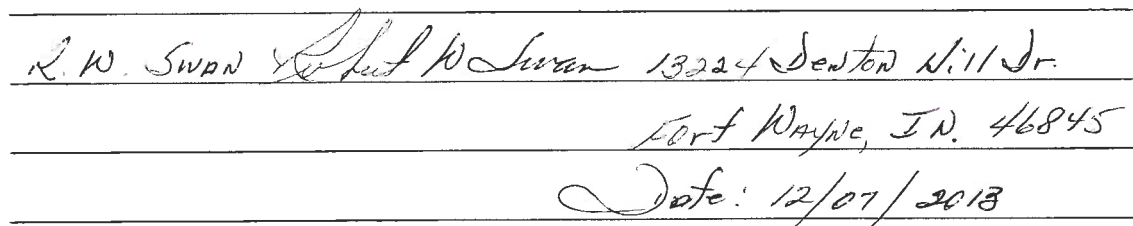 R. W. SWAN Robert W Swan 13224 Denton Hill Dr.
Fort WAYNe, IN. 46845
Date: 12/07/2013